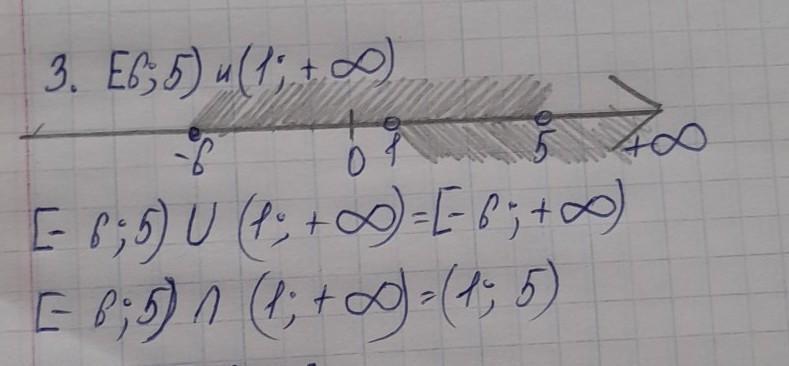 3. [-6; 5) и (1; + ∞)
-6 0 1 5 +∞
[- 6; 5) ∪ (1; + ∞) = [- 6; + ∞)
[- 6; 5) ∩ (1; + ∞) = (1; 5)